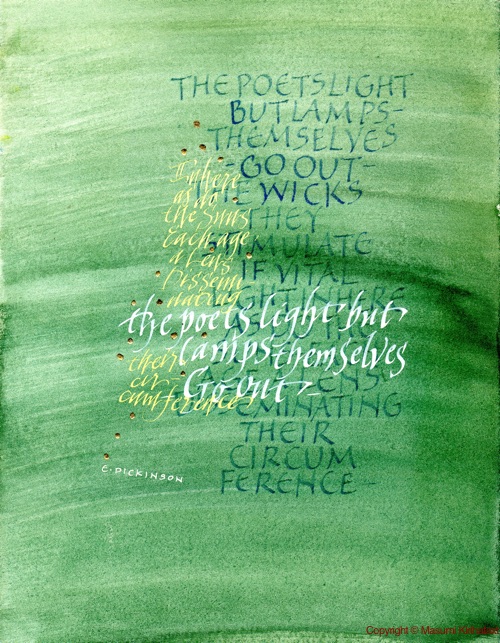 THE POETS LIGHT
BUT LAMPS-
THEMSELVES
-GO OUT-
THE WICKS
THEY
STIMULATE
IF VITAL
LIGHT
INHERE
AS DO THE
LENS
DISSEMINATING
THEIR
CIRCUM
FERENCE-
Inhere
as do
the Suns
Each age
a Lens
Dissemi
nating
their
cir
cumference
the poets light but
lamps themselves
Go out-
E. DICKINSON
Copyright © Masumi